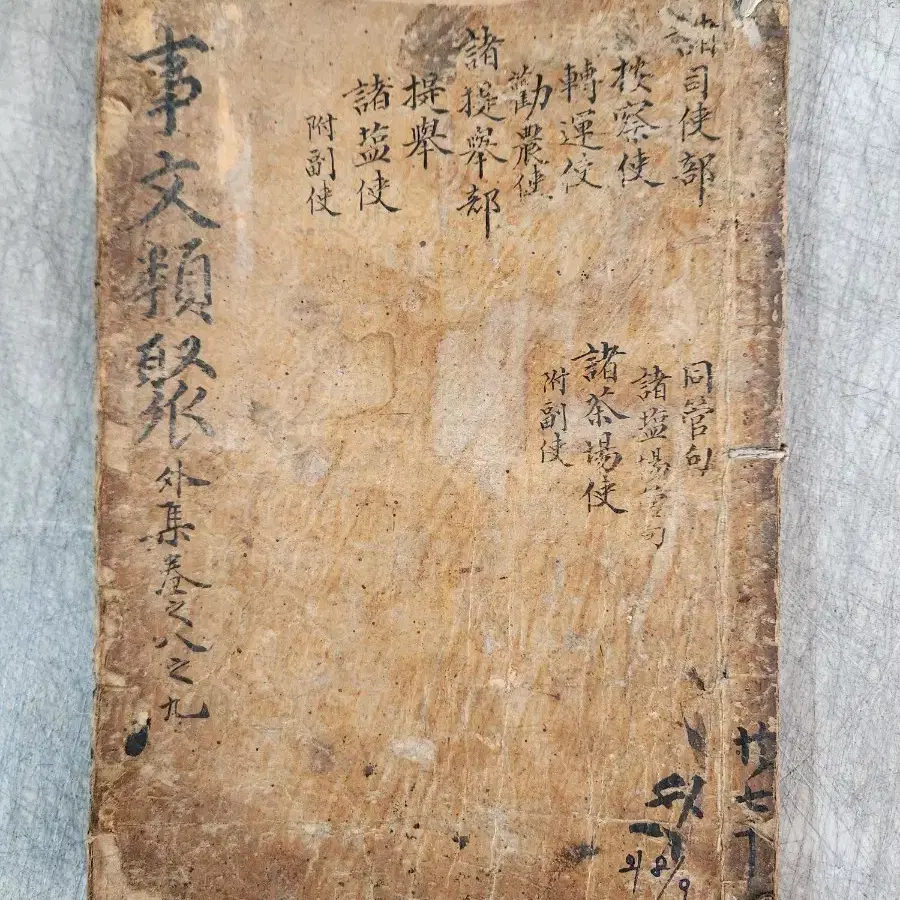 諸司使部
按察使
轉運使
勸農使
諸提舉部
提舉
諸塩使
附副使
同管勾
諸塩場管勾
諸茶場使
附副使
事文類聚 外集 卷之八之九
외 8/9